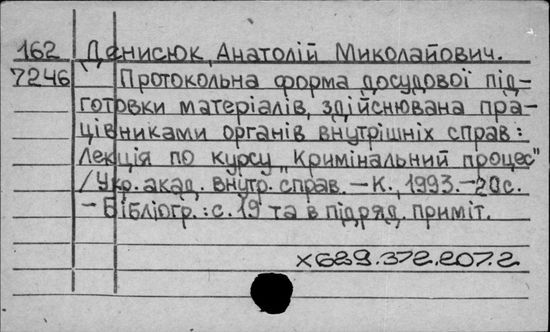 162 Денисюк, Анатолій Миколайович.
7246 Протокольна форма досудової під-
готовки матеріалів, здійснювана пра-
цівниками органів внутрішніх справ:
Лекція по курсу „Кримінальний процес"
/Укр. акад. внутр. справ. – К., 1993. – 20с.
– Бібліогр.: с. 19 та в підряд. приміт.
х689.372.207.2